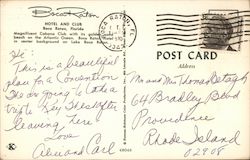 Boca Raton
HOTEL AND CLUB
Boca Raton, Florida
Magnificent Cabana Club with its golden
beach on the Atlantic Ocean. Boca Raton
in center background on Lake Boca Raton
BOCA RATON, FL
PM
POST CARD
Address
Hi:
This is a beautiful
place for a Convention
The are going to take a
trip to Key
leaving here
Love
and Carl
Mr and Mrs Thomas
64 Bradley Blvd
Providence
Rhode Island
02908
K
68068